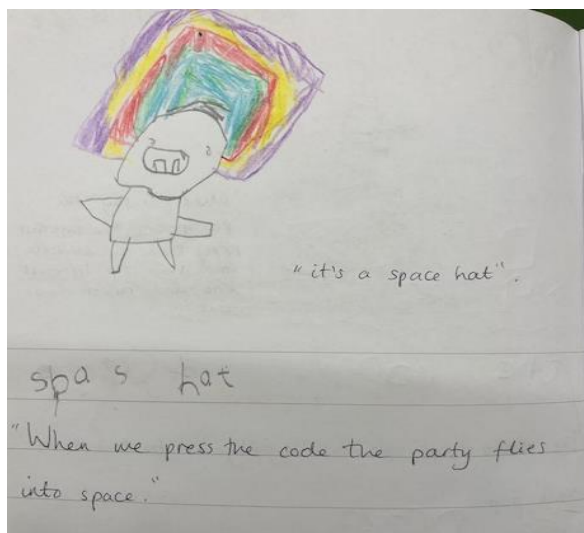 "it's a space hat".
spas hat
"When we press the code the party flies
into space."